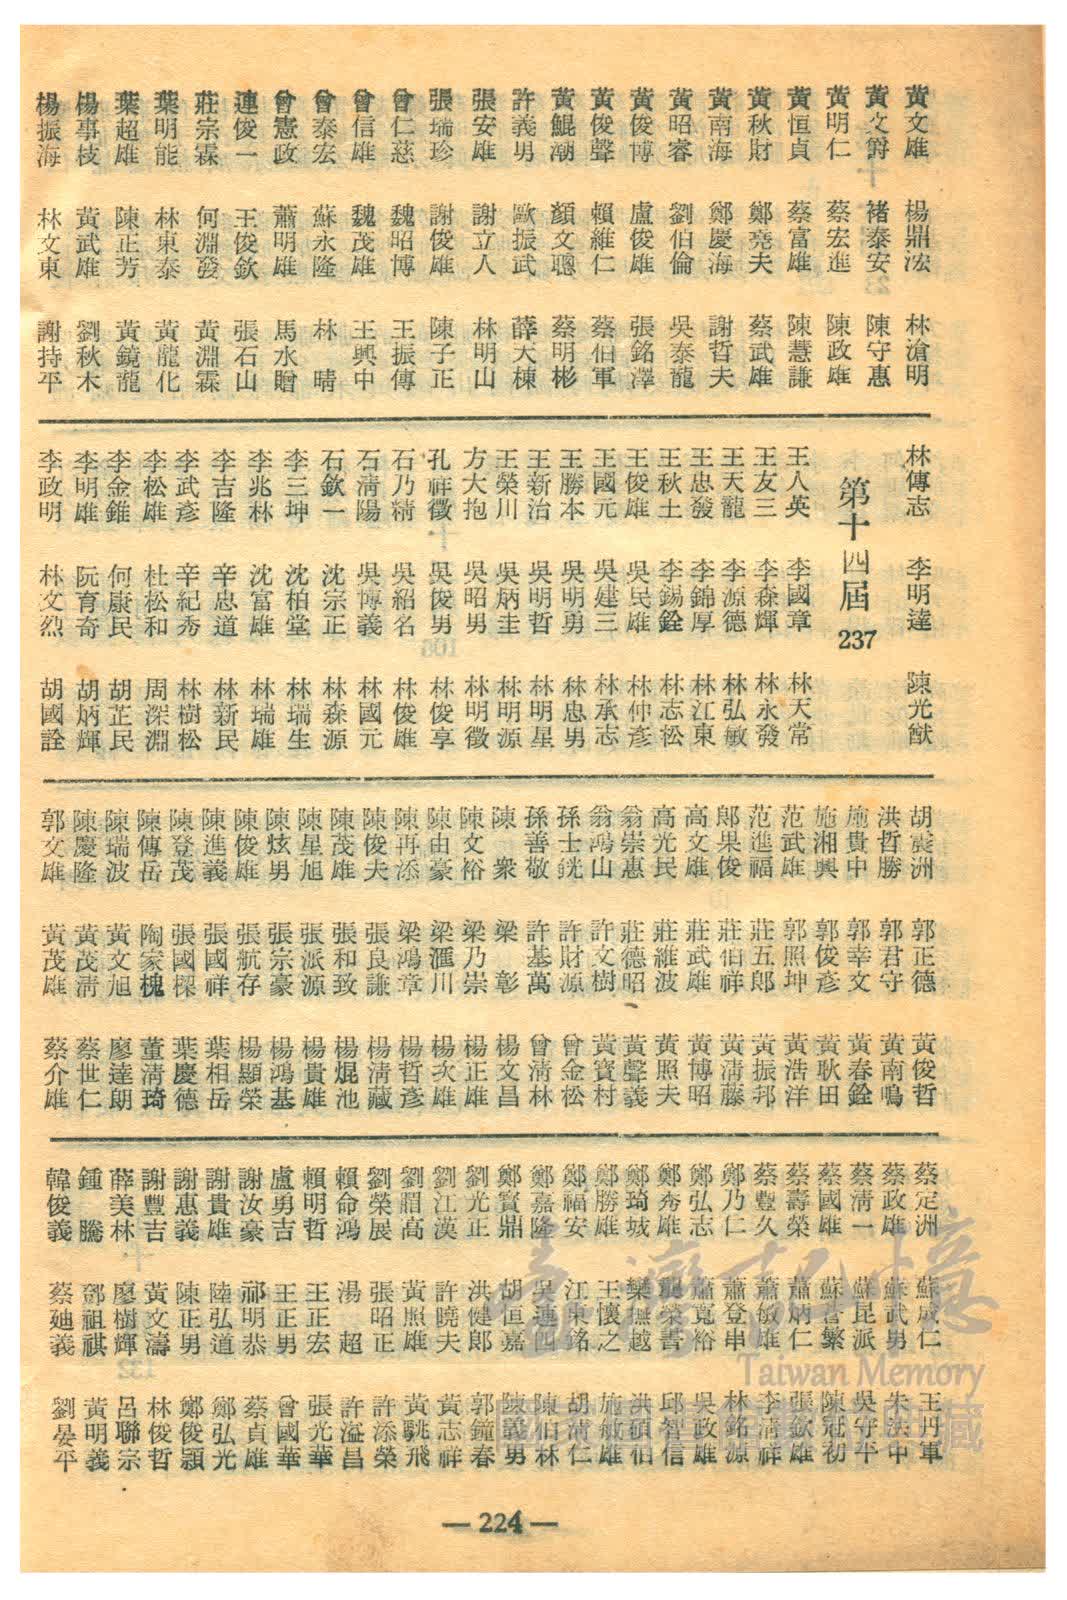 黃文雄 黃文爵 黃明仁 黃恒貞 黃秋財 黃南海 黃昭睿 黃俊博 黃俊聲 黃鯤潮 許義男 張安雄 張瑞珍 曾仁慈 曾信雄 曾泰宏 曾憲政 連俊一 莊宗霖 葉明能 葉超雄 楊事枝 楊振海
楊鼎浤 褚泰安 蔡宏進 蔡富雄 鄭堯夫 鄭慶海 劉伯倫 盧俊雄 賴維仁 顏文聰 歐振武 謝立人 謝俊雄 魏昭博 魏茂雄 蘇永隆 蕭明雄 王俊欽 何淵發 林東泰 陳正芳 黃武雄 林文東
林滄明 陳守惠 陳政雄 陳慧謙 蔡武雄 謝哲夫 吳泰龍 張銘澤 蔡伯軍 蔡明彬 薛天棟 林明山 陳子正 王振傳 王興中 林晴 馬水贈 張石山 黃淵霖 黃龍化 黃鏡龍 劉秋木 謝持平
林傳志 李明達 陳光猷
第十四屆 237
王八英 王友三 王天龍 王忠發 王秋土 王俊雄 王國元 王勝本 王新治 王榮川 方大抱 孔祥徵 石乃精 石清陽 石欽一 李三坤 李兆林 李吉隆 李武彥 李松雄 李金錐 李明雄 李政明
李國章 李森輝 李源德 李錦厚 李錫銓 吳民雄 吳建三 吳明勇 吳明哲 吳炳圭 吳昭男 吳俊男 吳紹名 吳博義 沈宗正 沈柏堂 沈富雄 辛忠道 辛紀秀 杜松和 何康民 阮育奇 林文烈
林天常 林永發 林弘敏 林江東 林志松 林仲彥 林承志 林忠男 林明星 林明源 林明徵 林俊享 林俊雄 林國元 林森源 林瑞生 林瑞雄 林新民 林樹松 周深淵 胡芷民 胡炳輝 胡國詮
胡震洲 洪哲勝 施貴中 施湘興 范武雄 范進福 郎果俊 高文雄 高光民 翁崇惠 翁鴻山 孫士銧 孫善敬 陳衆 陳文裕 陳由豪 陳再添 陳俊夫 陳茂雄 陳星旭 陳炫男 陳俊雄 陳進義 陳登茂 陳傳岳 陳瑞波 陳慶隆 郭文雄
郭正德 郭君守 郭幸文 郭俊彥 郭照坤 莊五郎 莊伯祥 莊武雄 莊維波 莊德昭 許文樹 許財源 許基萬 梁彰 梁乃崇 梁滙川 梁鴻章 張良謙 張和致 張派源 張宗豪 張航存 張國祥 張國樑 陶家槐 黃文旭 黃茂清 黃茂雄
黃俊哲 黃南鳴 黃春銓 黃耿田 黃浩洋 黃振邦 黃清藤 黃博昭 黃照夫 黃聲義 黃寶村 曾金松 曾清林 楊文昌 楊正雄 楊次雄 楊哲彥 楊清藏 楊焜池 楊貴雄 楊鴻基 楊顯榮 葉相岳 葉慶德 董清琦 廖達朗 蔡世仁 蔡介雄
蔡定洲 蔡政雄 蔡清一 蔡國雄 蔡壽榮 蔡豐久 鄭乃仁 鄭弘志 鄭秀雄 鄭琦城 鄭勝雄 鄭福安 鄭嘉隆 鄭寶鼎 劉光正 劉江漢 劉帽高 劉榮展 賴命鴻 賴明哲 盧勇吉 謝汝豪 謝貴雄 謝惠義 謝豐吉 薛美林 鍾騰 韓俊義
蘇成仁 蘇武男 蘇昆派 蘇晋繁 蕭炳仁 蕭敏雄 蕭登申 蕭寬裕 龔榮書 欒撫越 王懷之 江東銘 吳連四 胡恒嘉 洪健郎 許曉夫 黃照雄 張昭正 湯超 王正宏 王正男 祁明恭 陸弘道 陳正男 黃文濤 廖樹輝 鄧祖祺 蔡廸義
王丹軍 朱法中 吳守平 陳冠初 張欽雄 李清祥 林銘源 吳政雄 邱智信 洪碩伯 施敏雄 胡清仁 陳伯林 陳義男 郭鐘春 黃志祥 黃騋飛 許添榮 許溢昌 張光華 曾國華 蔡貞雄 鄭弘光 鄭俊穎 林俊哲 呂聯宗 黃明義 劉晏平
臺灣記憶
Taiwan Memory
—224—